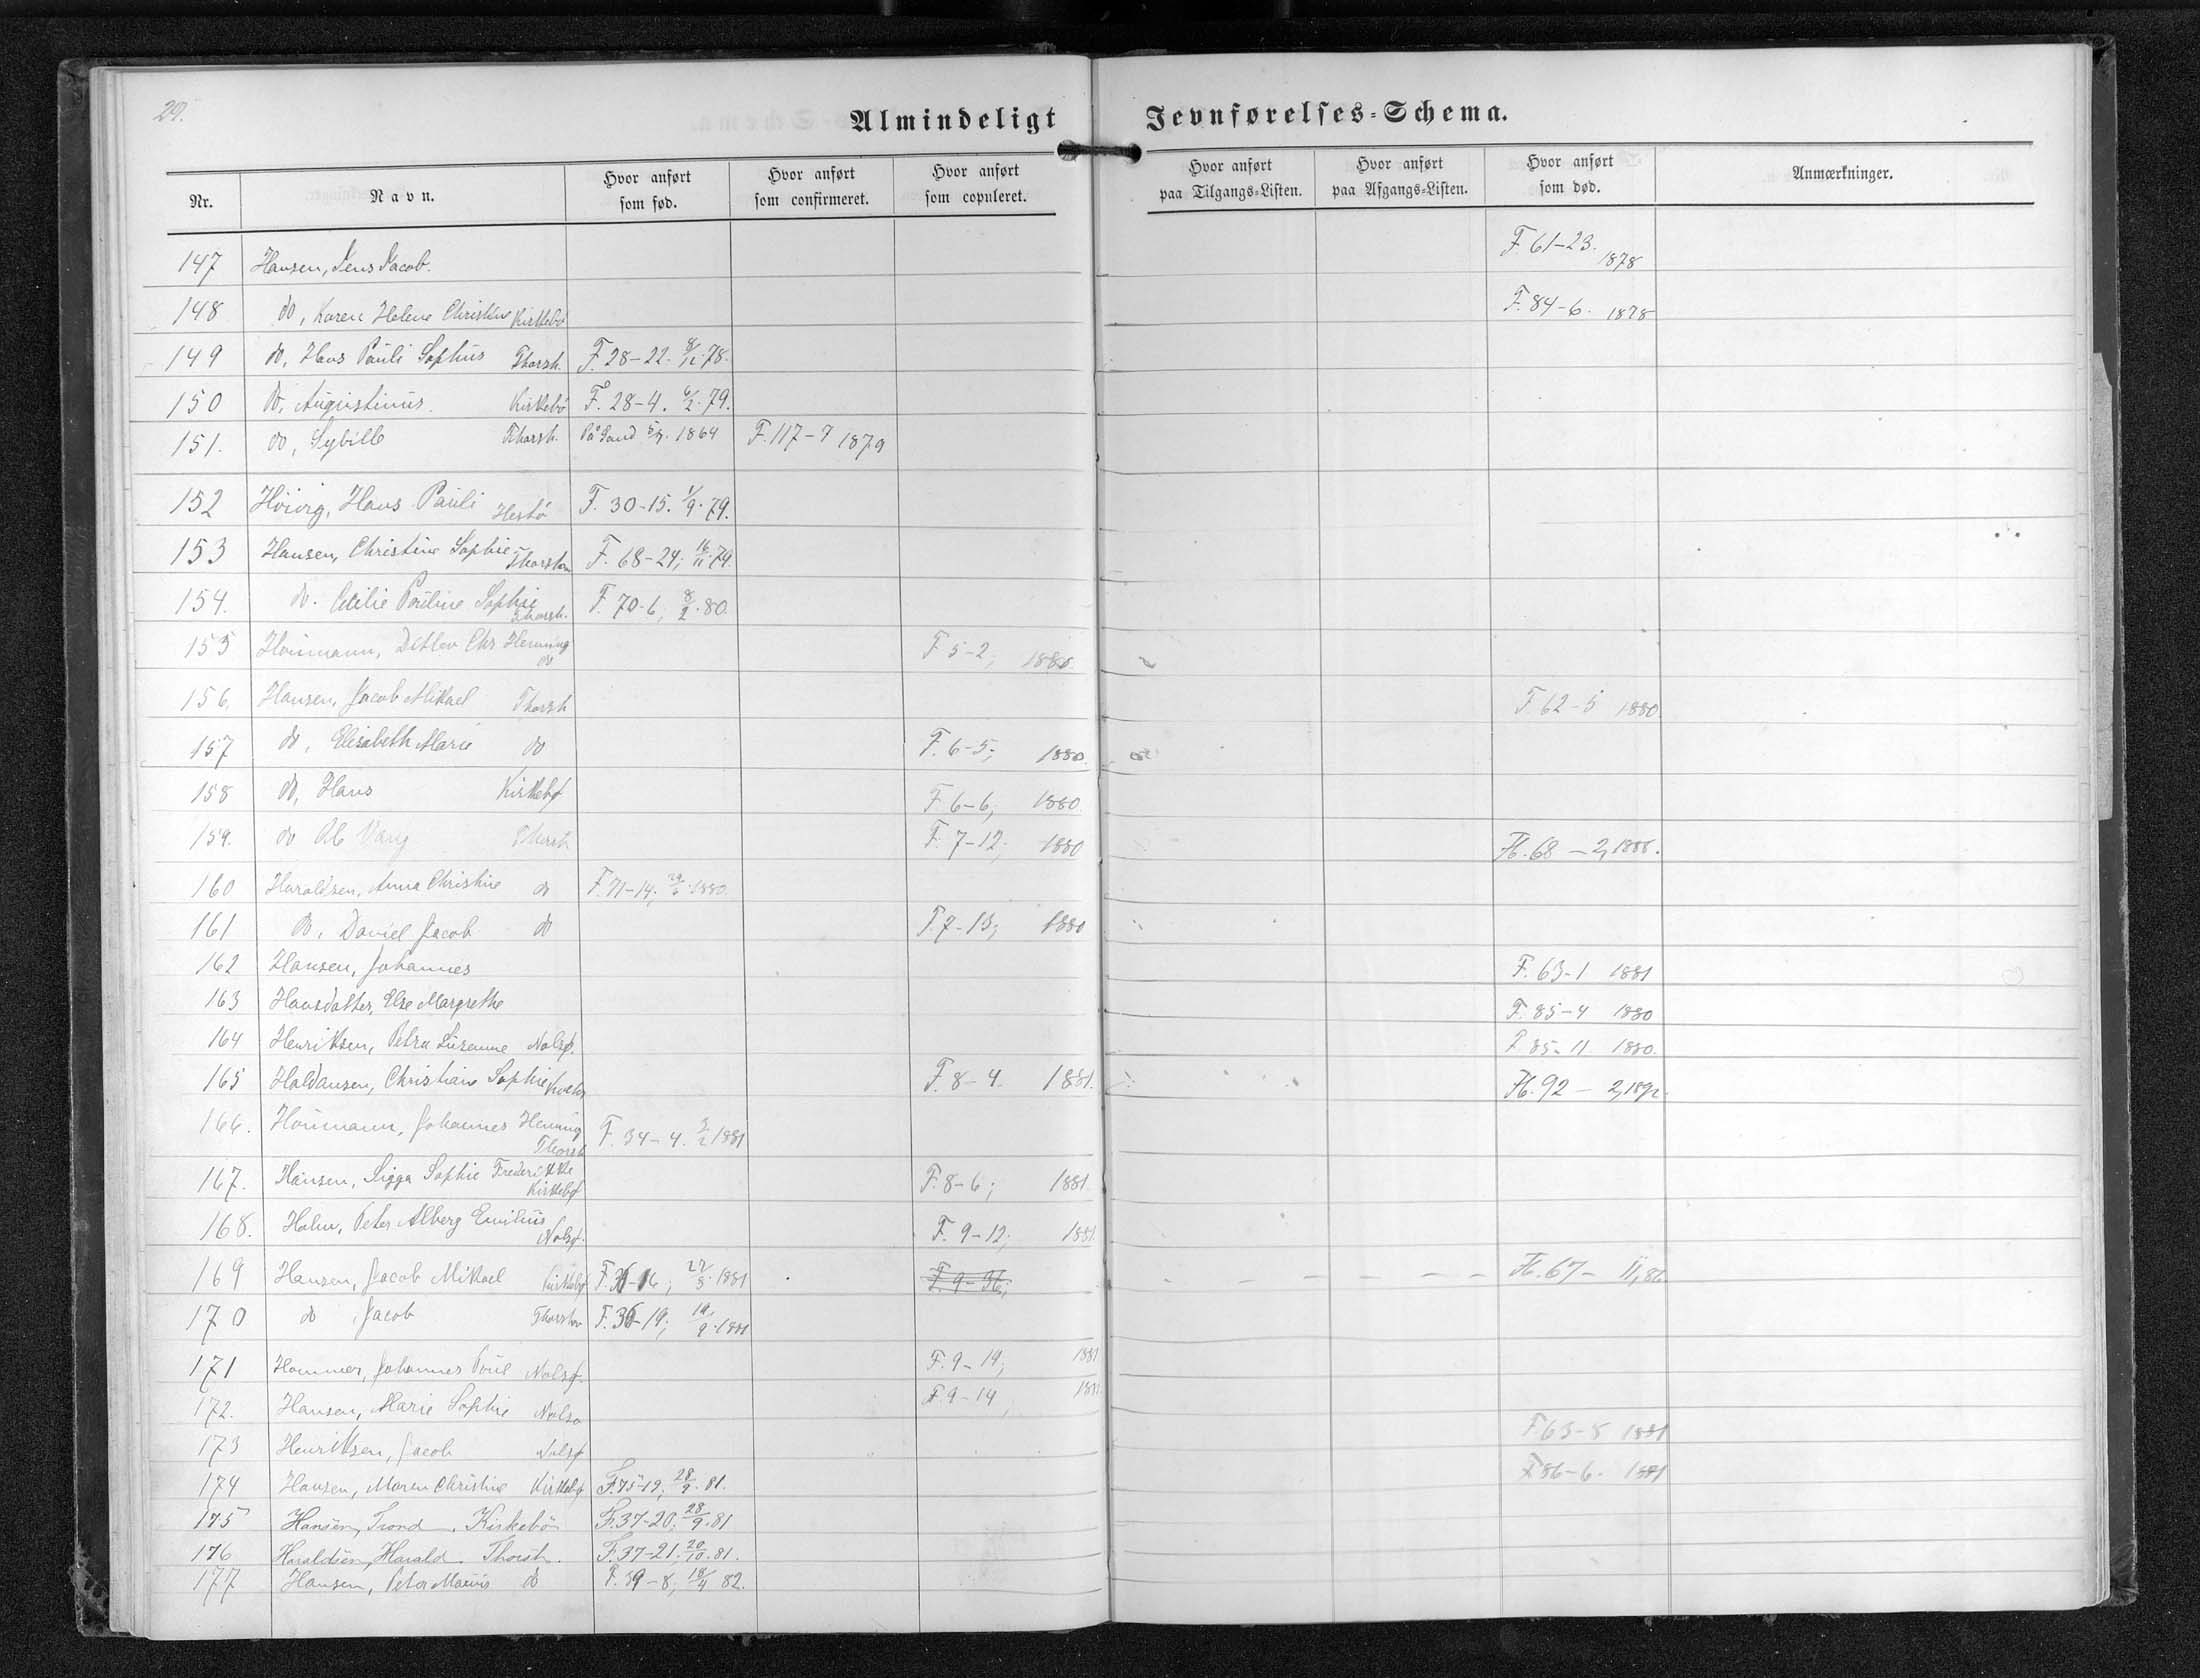 29.
Almindeligt Jevnførelses-Schema.
Nr. Navn. Hvor anført som fød. Hvor anført som confirmeret. Hvor anført som copuleret. Hvor anført paa Tilgangs-Listen. Hvor anført paa Afgangs-Listen. Hvor anført som død. Anmærkninger.
147 Hansen, Jens Jacob. F. 61-23. 1878
148 do, Karen Helene Christine Kirkebö F. 84-6. 1878
149 do, Hans Pauli Sophus Thorsh. F. 28-22. 8/12. 78.
150 do, Augustinus. Kirkebö F. 28-4. 6/2. 79.
151. do, Sybille Thorsh. På Sand 5/7. 1864 F. 117-7 1879
152 Höivig, Hans Pauli Hestö F. 30-15. 1/9. 79.
153 Hansen, Christine Sophie Thorshavn F. 68-24; 16/11. 79.
154. do. Cecilie Pouline Sophie Thorsh. F. 70-6; 8/2. 80.
155 Houmann, Ditlev Chr Henning do F 5-2; 1880.
156. Hansen, Jacob Mikael Thorsh F. 62-5 1880.
157 do, Elisabeth Marie do F. 6-5; 1880.
158 do, Hans Kirkebø F. 6-6; 1880.
159. do Ole Vang Thorsh F. 7-12; 1880 Fl. 68 - 2, 1888.
160 Haraldsen, Anna Christine do F. 71-14; 29/5. 1880.
161 do, Daniel Jacob do F. 7-13; 1880
162 Hansen, Johannes F. 63-1 1881
163 Hansdatter, Else Margrethe F. 85-4 1880
164 Henriksen, Petra Susanne Nolsø. F. 85-11 1880.
165 Haldansen, Christiane Sophie F. 8-4. 1881. Fl. 92 - 2, 1892.
166. Houmann, Johannes Henning Thorsh F. 34-4. 3/2 1881
167. Hansen, Sigga Sophie Frederikke Kirkebø F. 8-6; 1881.
168. Holm, Peter Alberg Emilius Nolsø. F. 9-12; 1881.
169 Hansen, Jacob Mikael Kirkebø F. 36-16; 27/8. 1881 F. 9-36; Fl. 67 - 11, 86.
170 do, Jacob Thorshavn F. 36-19; 19/9. 1881
171 Hammer, Johannes Poul Nolsø. F. 9-19; 1881
172. Hansen, Marie Sophie Nolsø F. 9-14 1881.
173 Henriksen, Jacob Nolsø F. 63-8 1881
174 Hansen, Maren Christine Kirkebø F. 75-19; 28/9. 81. F. 86-6. 1881
175 Hansen, Trond, Kirkebö F. 37-20; 28/9. 81
176 Haraldsen, Harald. Thorsh. F. 37-21; 20/10. 81.
177 Hansen, Peter Marius do F. 39-8; 18/4 82.